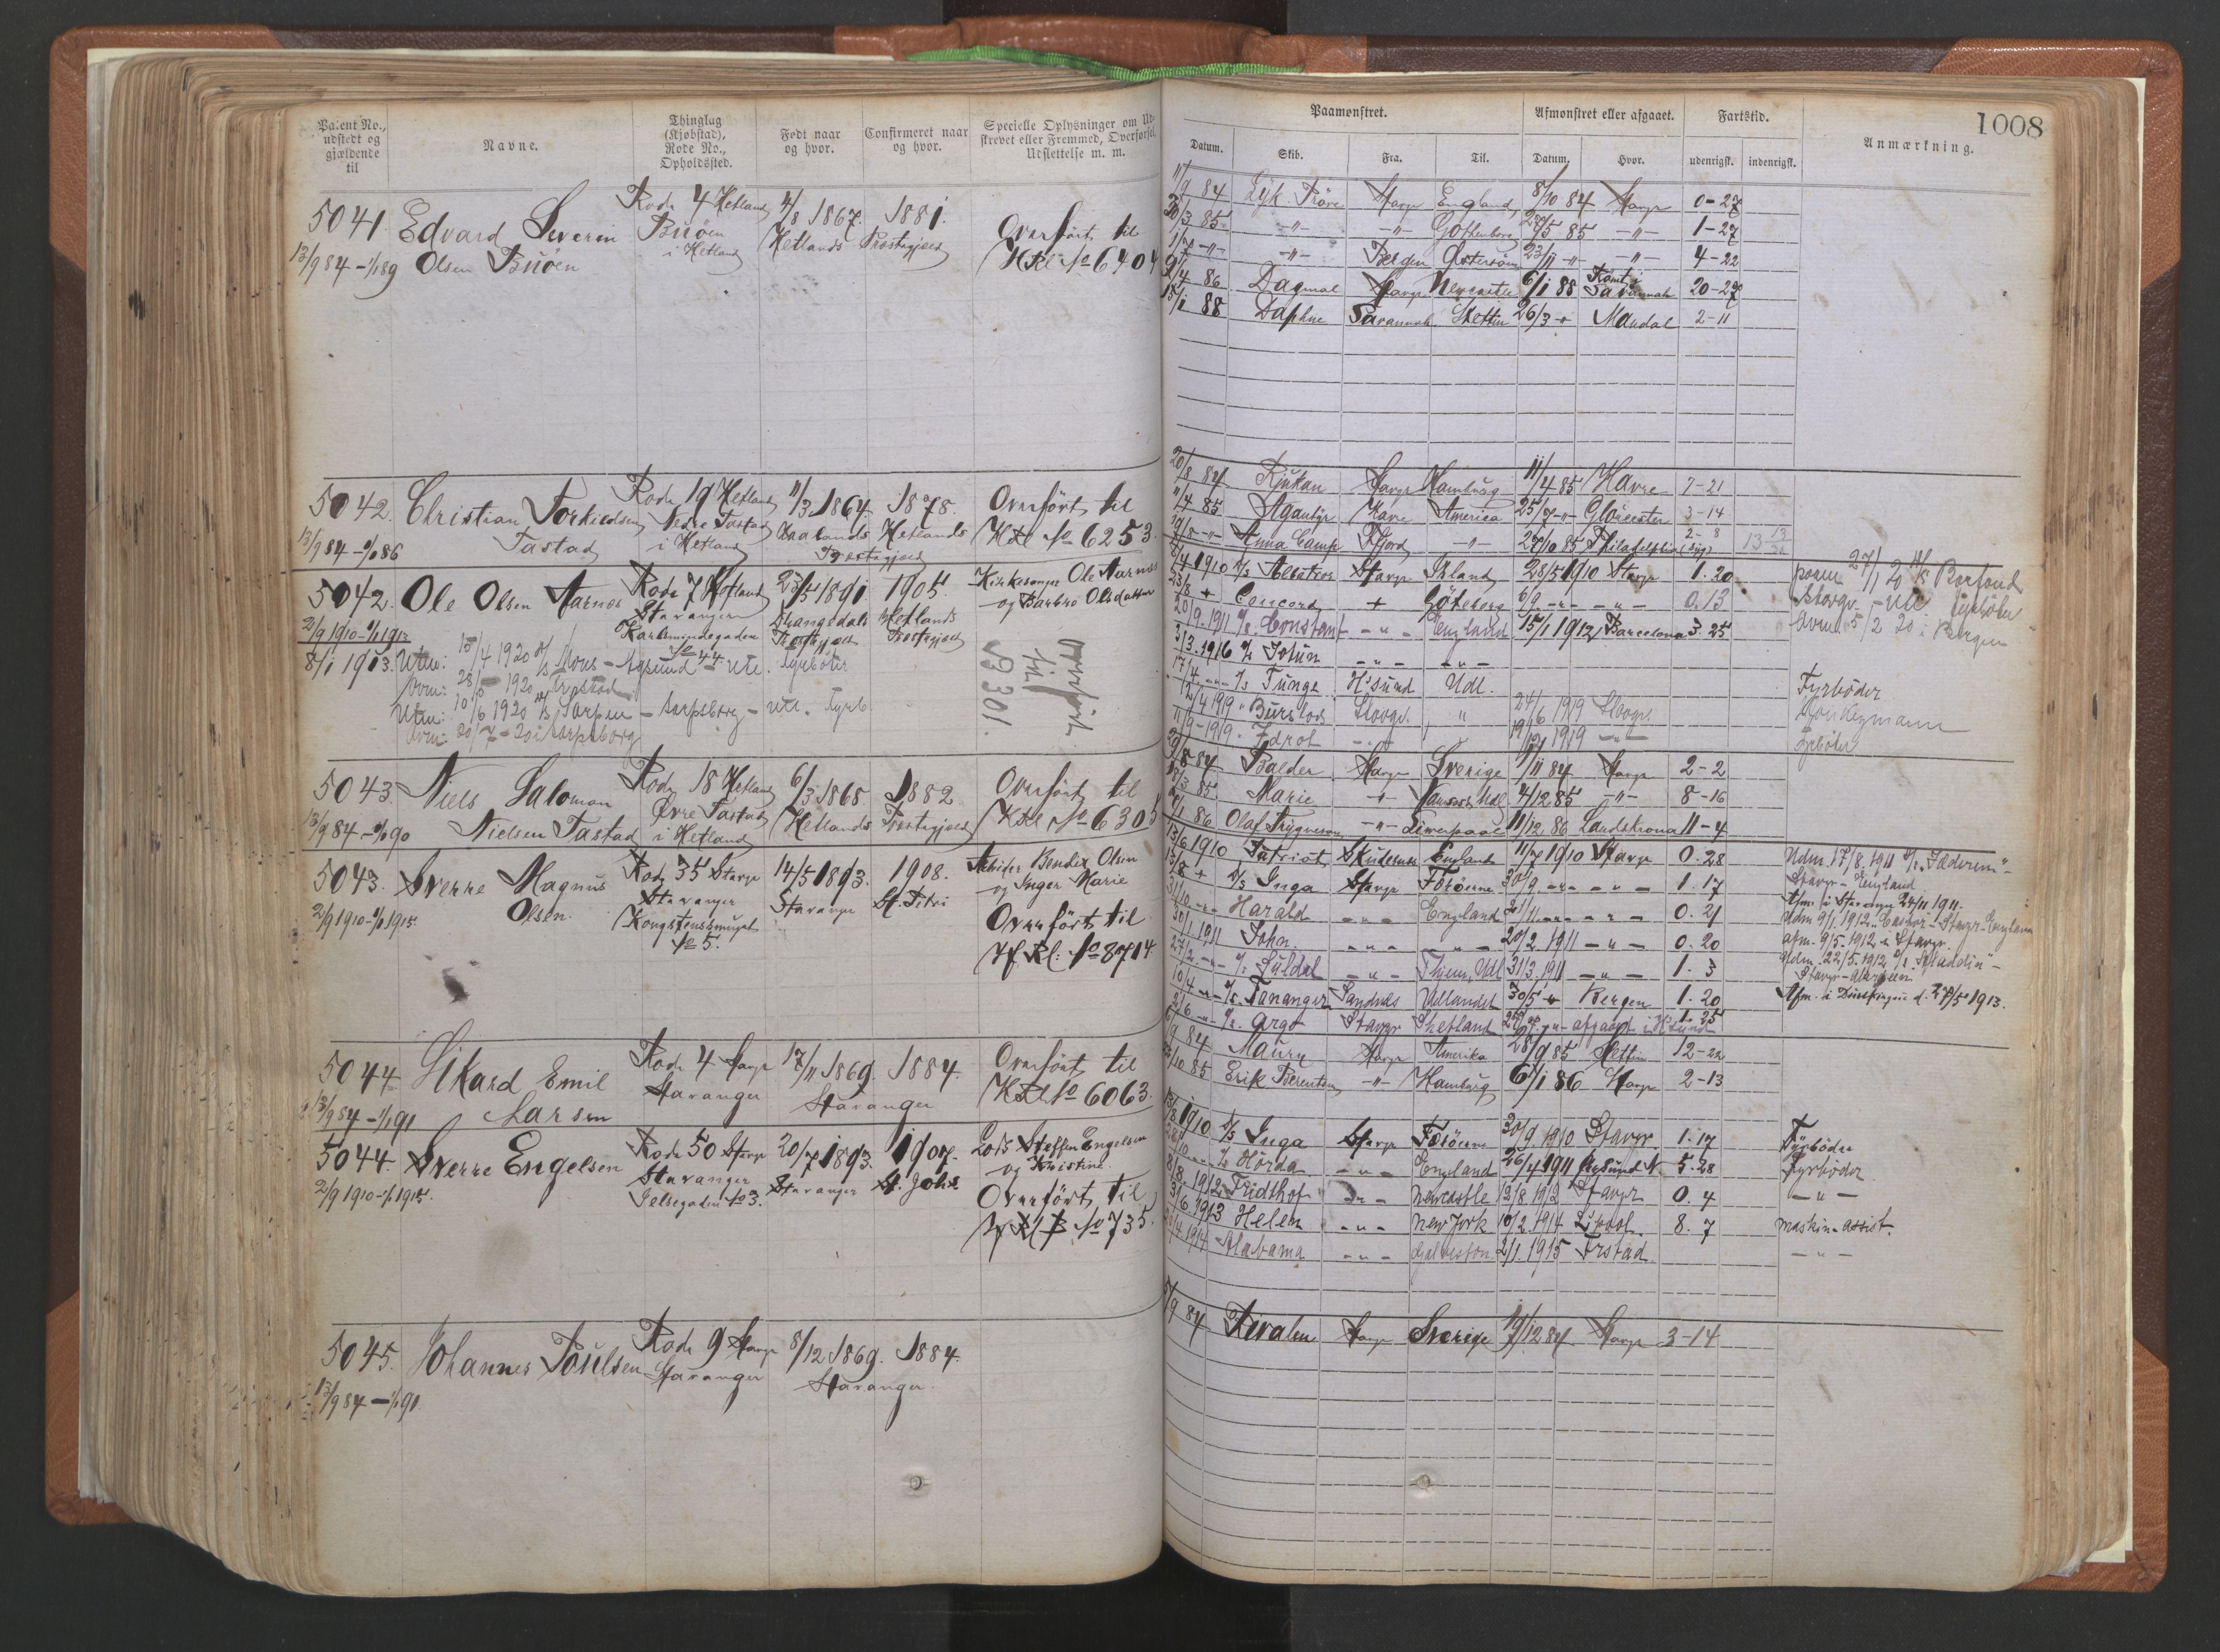 Patent No., udstedt og gjældende til
Navne.
Thinglag (Kjøbstad), Rode No., Opholdssted.
Født naar og hvor.
Confirmeret naar og hvor.
Specielle Oplysninger om Udskrevet eller Fremmed, Overførsel, Udslettelse m. m.
5041 Edvard Severin Rode 4 Hetland 4/8 1867. 1881. Overført til
13/9 84 – 1/1 89 Olsen Buøen Buøen i Hetland Hetlands Præstegjæld HRl No 6404
5042. Christian Torkildsen Rode 19 Hetland 11/3 1864. 1878. Overført til
13/9 84 – 1/1 86 Tastad Nedre Tastad i Hetland Haalands Hetlands Præstegjæld HRl No 6253.
5042. Ole Olsen Aarnes Rode 7 Hetland 23/5 1891 1905. Kirkesanger Ole Aarnes
2/9 1910 – 1/1 1912 Stavanger Drangedals Hetlands og Barbro Olsdatter
8/1 1913. Karlsmindegaden No 44. Præstgjæld Præstegjæld
overført til B 301.
Utm: 15/4 1920 Mons – Aysund – Utl. Fyrbøter
Avm: 28/ – 1920
Utm: 10/6 1920 Sarpen – Sarpsborg – Utl. Fyrb
Avm: 20/7 – 20 i Sarpsborg
5043. Niels Salomon Rode 18 Hetland 6/3 1868 1882. Overført til
13/9 84 – 1/1 90 Nielsen Tastad Øvre Tastad i Hetland Hetlands Præstegjæld HRl No 6305
5043. Sverre Magnus Rode 35 Stavgr 14/5 1893. 1908. Bendix Olsen
2/9 1910 – 1/1 1915. Olsen. Stavanger Stavanger St. Petri og Inger Marie
Kongstensmuget No 5. Overført til
Hf. Rl. No 8714.
5044. Sikard Emil Rode 4 Stavgr 17/11 1869. 1884. Overført til
13/9 84 – 1/1 91 Larsen Stavanger Stavanger HRl No 6063.
5044. Sverre Engelsen Rode 50 Stavgr 20/7 1893. 1907. Lods Steffen Engelsen
2/9 1910 – 1/1 1915. Stavanger Stavanger St. Johs og Kristine.
No 3. Overført til
No 735.
5045. Johannes Poulsen Rode 9 Stavgr 8/12 1869. 1884.
13/9 84 – 1/1 90. Stavanger Stavanger
1008
Paamønstret. Afmønstret eller afgaaet. Fartstid. Anmærkning.
Datum. Skib. Fra. Til. Datum. Hvor. udenrigsk. indenrigsk.
11/9 84 Lyk Prøve Stavgr England 8/10 84 Stavgr 0–27
/3 85 –"– –"– Gothenborg /5 85 –"– 1–27
1/7 –"– –"– Bergen 23/11 –"– –"– 4–22
/4 86 Dagmal Stavgr Newcastle 6/1 88 Savannah 20–27
15/1 88 Daphne Savannah Stettin 26/3 + Mandal 2–11
20/8 84 Rjukan Stavgr Hamburg 11/4 85 Havre 7–21
11/4 85 Aganty Havre America 25/7 –"– Gloucester 3–14
19/8 –"– Anna Camp –"– 27/10 85 Philadelphia 2–8
/4 1910 D/S Albatros Stavgr Island 28/5 1910 Stavgr 1.20
23/8 + Concord + Göteborg 6/9 –"– –"– 0.13
20/9. 1911 Constant –"– England 15/1 1912 Barcelona 3.25
3/3. 1916 Jotun –"– –"–
17/4 –"– Tunge H'sund Udl. Fyrbøder
12/4 1919 Burstad Stavgr. " 24/6 1919 Stavgr. Donkeymann
11/9 – 1919. Idrot –"– 19/12 1919 –"– Fyrbøter
27/1 20 Borfond
Stavgr – Utl. Fyrbøter
Avm 5/2 20 i Bergen
/8 84 Balder Stavgr Sverige 11/11 84 Stavgr 2–2
/3 85 Marie + Udl 4/12 85 –"– 8–16
/1 86 Olaf Trygvesøn –"– Liverpool 11/12 86 Landskrona 11–4
13/6 1910 Patriot, Skudesnæs England 11/7 1910 Stavgr 0.28
13/8 + D/S Inga Stavgr Færøerne 30/9 –"– –"– 1.17
31/10 –"– Harald –"– England 21/11 –"– –"– 0.21
30/1 1911 John. –"– –"– 20/2. 1911 –"– 0.20
27/2. –"– Suldal –"– Udl 31/3. 1911 –"– 1.3
10/4 –"– Tananger Sandnes Udlandet 30/5 –"– Bergen 1.20
2/6. –"– Argo Stavgr Shetland –"– afgaaet 1.25
Udm. 17/8. 1911 "Jæderen"
Stavgr – England
Afm. i Stavanger 24/11 1911.
Udm. 9/1. 1912. – Stavgr – England
afm. 9/5. 1912 i Stavgr.
Udm. 22/5. 1912 "Aladdin" –
Afm. i d. 27/5 1913.
/9 84 Maury Stavgr Amerika 28/9 85 Stettin 12–22
/10 85 Erik Berentsen –"– Hamburg 6/1 86 Stavgr 2–13
13/8 1910 D/S Inga Stavgr Færøerne 30/9 1910 Stavgr 1.17 Fyrbøder
Hörda –"– England 26/4 1911 5.28 Fyrbøder
8/8. 1912 Fridthjof –"– Newcastle 12/8. 1912 Stavgr 0.4 –"–
3/6 1913 Helen –"– New York 10/2. 1914 Lipool. 8.7 maskin-assist.
1914 Alabama –"– Galveston 2/1. 1915 Frstad –"–
5/9 84 Rivalen Stavgr Sverige 19/12 84 Stavgr 3–14